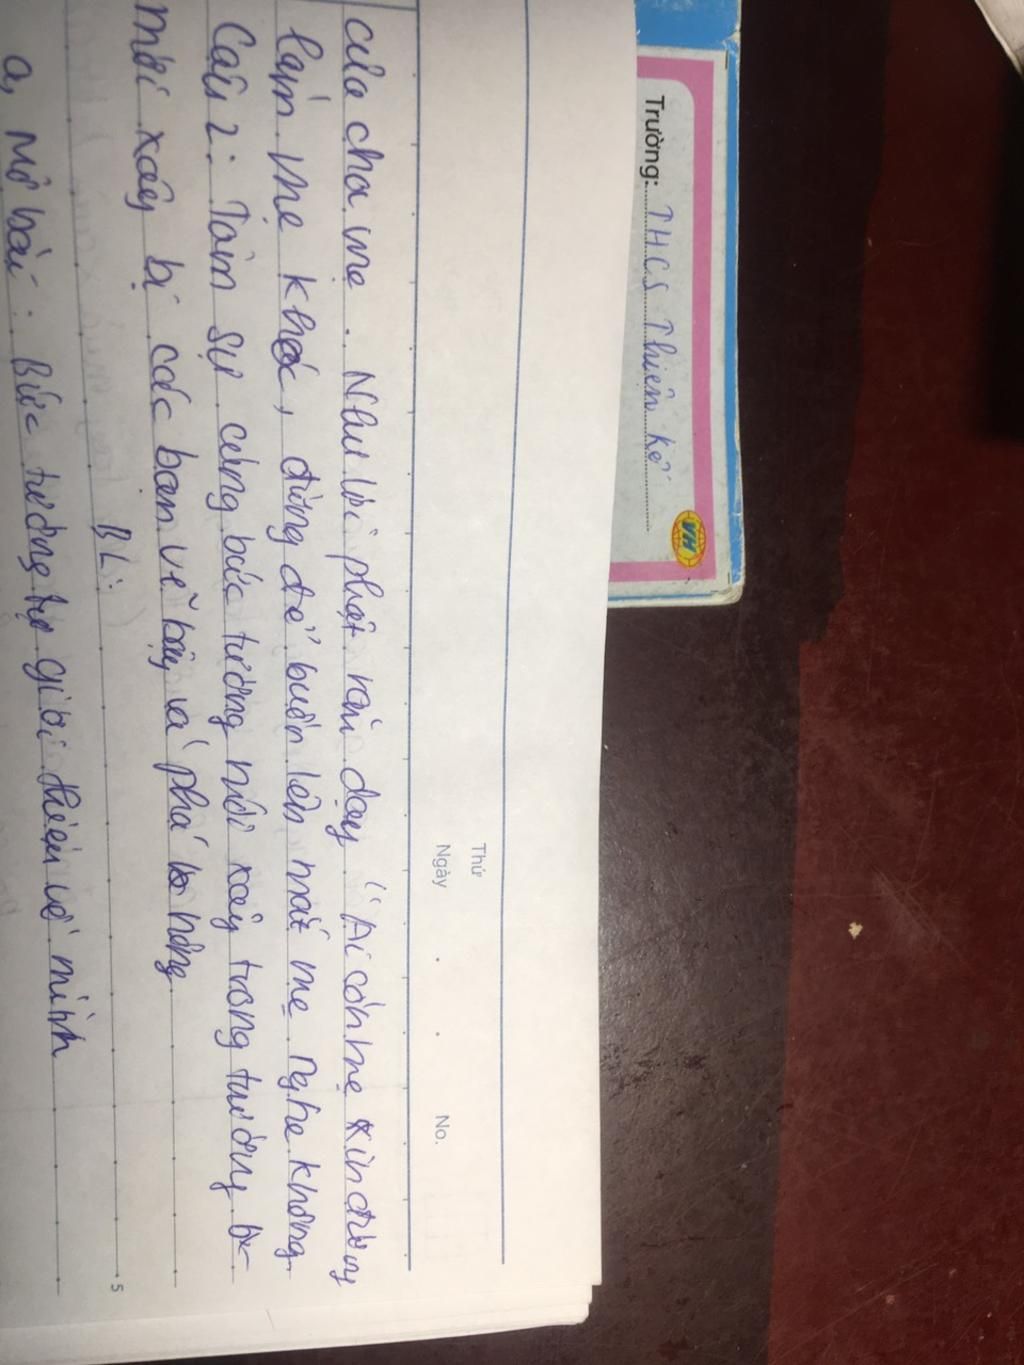 Trường: THCS Thiện Kế
VH
Thứ
Ngày . . No.
của cha mẹ.. Như lời phật răn dạy "Ai còn mẹ xin đừng
làm mẹ khóc, đừng để buồn lên mắt mẹ nghe không
Câu 2: Tâm sự cùng bức tường mới xây trong trường
mới xây bị các bạn vẽ bậy và phá hỏng
BL:
5
a, Mở bài: Bức tường tự giới thiệu về mình